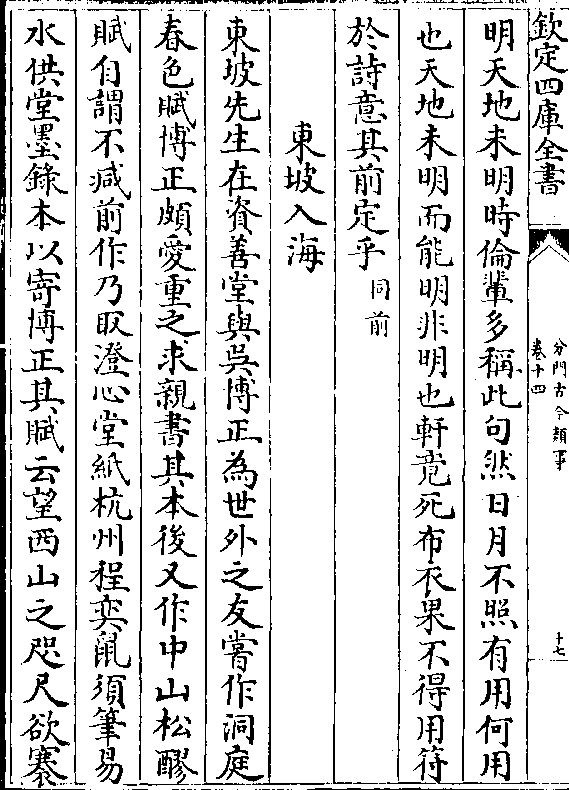 欽定四庫全書
分門古今類事
卷十四
十七
明天地未明時倫輩多稱此句然日月不照有用何用
也天地未明而能明非明也軒竟死布衣果不得用符
於詩意其前定乎同前
東坡入海
東坡先生在資善堂與吳博正為世外之友嘗作洞庭
春色賦博正頗愛重之求親書其本後又作中山松醪
賦自謂不減前作乃取澄心堂紙杭州程奕鼠須筆易
水供堂墨錄本以寄博正其賦云望西山之咫尺欲褰